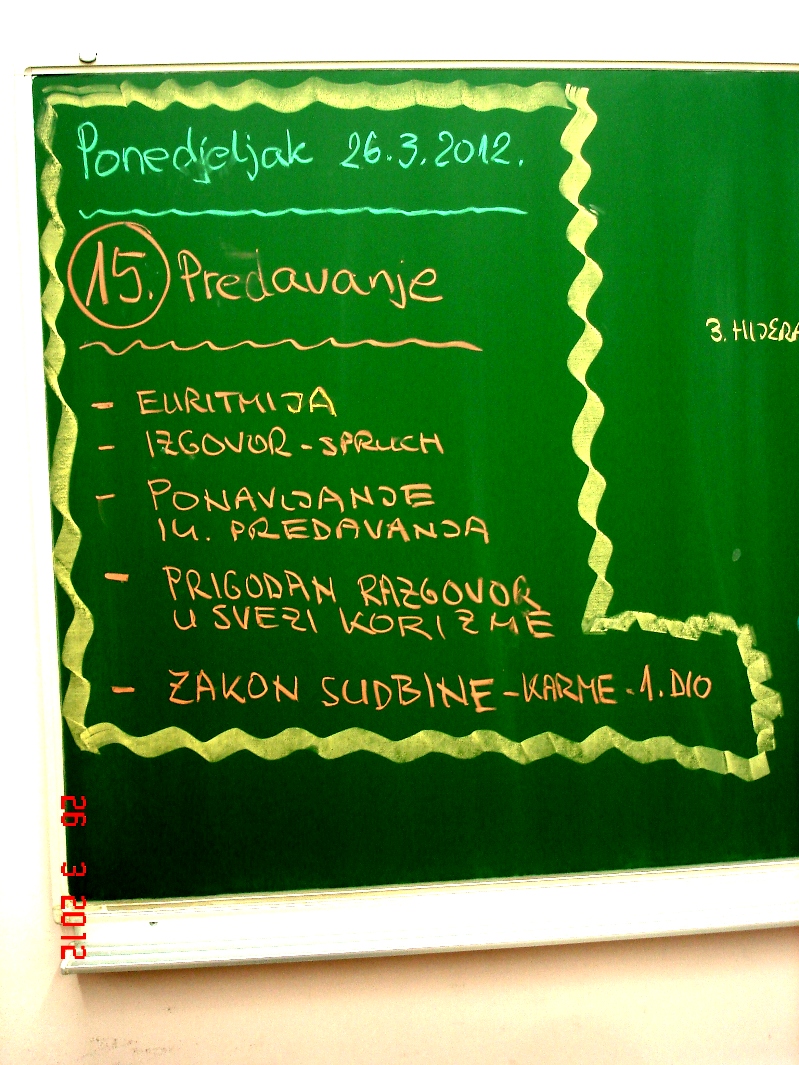 Ponedjeljak 26.3.2012.
15. Predavanje
- EURITMIJA
- IZGOVOR - SPRUCH
- PONAVLJANJE
14. PREDAVANJA
- PRIGODAN RAZGOVOR
U SVEZI KORIZME
- ZAKON SUDBINE - KARME - 1. DIO
3. HIJERA
26 3 2012